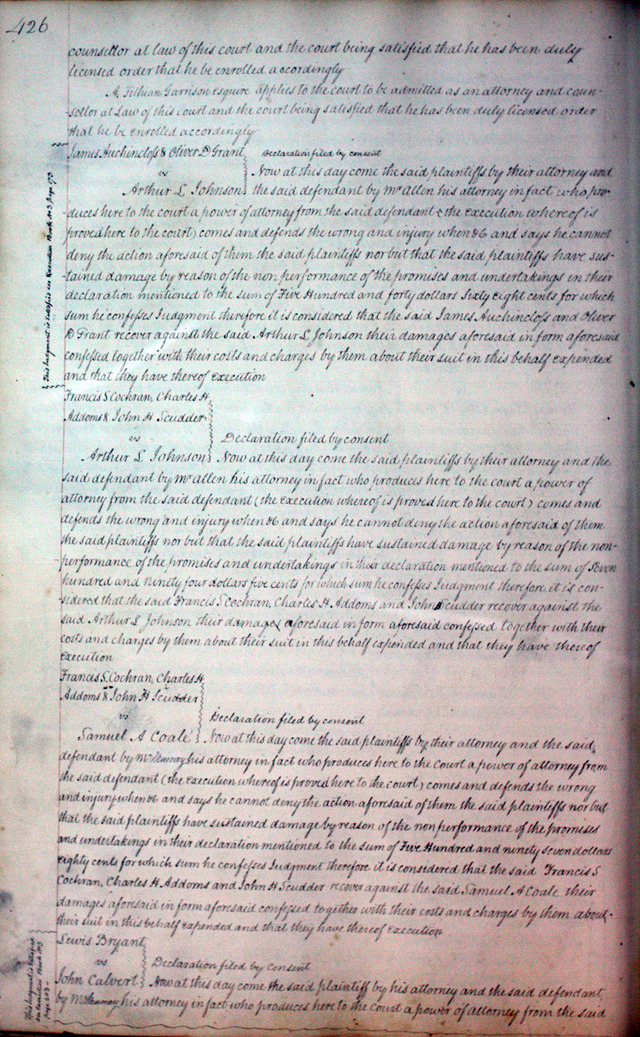 426
counsellor at law of this court and the court being satisfied that he has been duly
licensed order that he be enrolled accordingly
A. Garrison esquire applies to the court to be admitted as an attorney and coun-
-sellor at Law of this court and the court being satisfied that he has been duly licensed order
that he be enrolled accordingly
James Auchincloss & Oliver D Grant
vs
Arthur L Johnson
Declaration filed by consent
Now at this day come the said plaintiffs by their attorney and
the said defendant by Mr Allen his attorney in fact who pro-
duces here to the court a power of attorney from the said defendant & the execution whereof is
proved here to the court) comes and defends the wrong and injury when &c and says he cannot
deny the action aforesaid of them the said plaintiffs nor but that the said plaintiffs have sus-
-tained damage by reason of the non performance of the promises and undertakings in their
declaration mentioned to the sum of Five Hundred and forty dollars Sixty eight cents for which
sum he confesses Judgment therefore it is considered that the said James Auchincloss and Oliver
D Grant recover against the said Arthur L Johnson their damages aforesaid in form aforesaid
confessed together with their costs and charges by them about their suit in this behalf expended
and that they have thereof execution
This judgment is satisfied see Execution Book No 3 Page 173
Francis S Cochran, Charles H
Addoms & John H Scudder
vs
Arthur L Johnson
Declaration filed by consent
Now at this day come the said plaintiffs by their attorney and the
said defendant by Mr Allen his attorney in fact who produces here to the court a power of
attorney from the said defendant (the execution whereof is proved here to the court) comes and
defends the wrong and injury when &c and says he cannot deny the action aforesaid of them
the said plaintiffs nor but that the said plaintiffs have sustained damage by reason of the non-
performance of the promises and undertakings in their declaration mentioned to the sum of Seven
hundred and ninety four dollars five cents for which sum he confesses Judgment therefore it is con-
-sidered that the said Francis S Cochran, Charles H. Addoms and John Scudder recover against the
said Arthur L Johnson their damages aforesaid in form aforesaid confessed together with their
costs and charges by them about their suit in this behalf expended and that they have thereof
execution
Francis S. Cochran, Charles H
Addoms & John H Scudder
vs
Samuel A Coale
Declaration filed by consent
Now at this day come the said plaintiffs by their attorney and the said
defendant by his attorney in fact who produces here to the court a power of attorney from
the said defendant (the execution whereof is proved here to the court) comes and defends the wrong
and injury when &c and says he cannot deny the action aforesaid of them the said plaintiffs nor but
that the said plaintiffs have sustained damage by reason of the non performance of the promises
and undertakings in their declaration mentioned to the sum of Five Hundred and ninety seven dollars
eighty cents for which sum he confesses Judgment therefore it is considered that the said Francis S
Cochran, Charles H Addoms and John H Scudder recover against the said Samuel A Coale their
damages aforesaid in form aforesaid confessed together with their costs and charges by them about
their suit in this behalf expended and that they have thereof execution
Lewis Bryant
vs
John Calvert
Declaration filed by consent
Now at this day come the said plaintiff by his attorney and the said defendant
by his attorney in fact who produces here to the court a power of attorney from the said
This judgment is satisfied